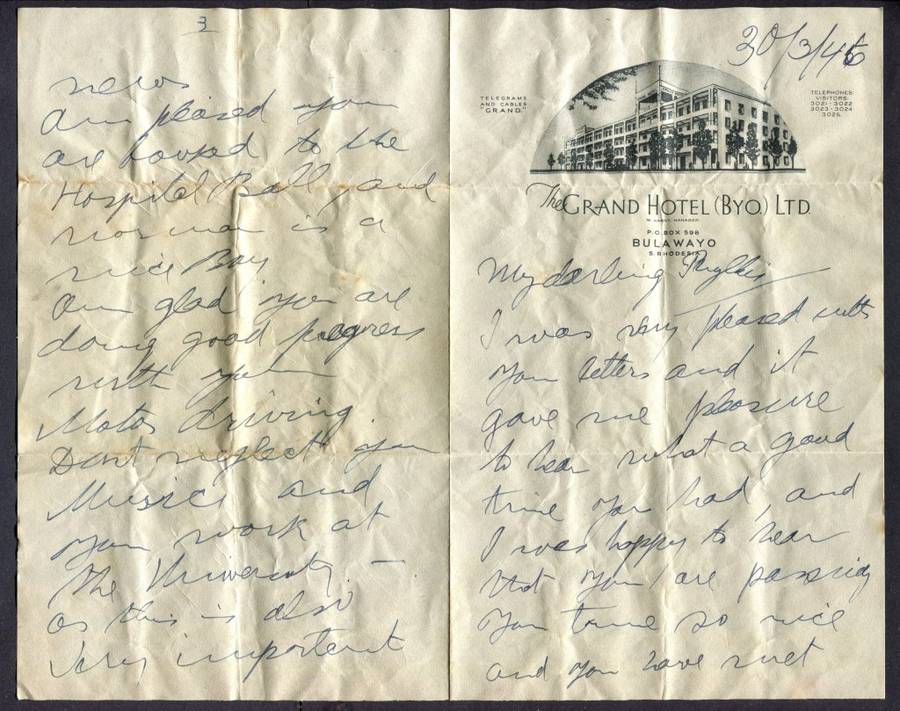 3
news
Am pleased you
are booked to the
Hospital Ball, and
norman is a
nice Boy
Am glad you are
doing good progress
with your
Motor driving.
Dont neglect your
Music and
your work at
the University. —
as this is also
Very important
30/3/46
TELEGRAMS
AND CABLES
"GRAND."
TELEPHONES:
VISITORS:
3021 - 3022
3023 - 3024
3025.
The GRAND HOTEL (BYO.) LTD.
MANAGER.
P.O. BOX 598
BULAWAYO
S. RHODESIA
My darling Phyllis
I was very pleased with
your letters and it
gave me pleasure
to hear what a good
time you had, and
I was happy to hear
that you are passing
your time so nice
and you have met